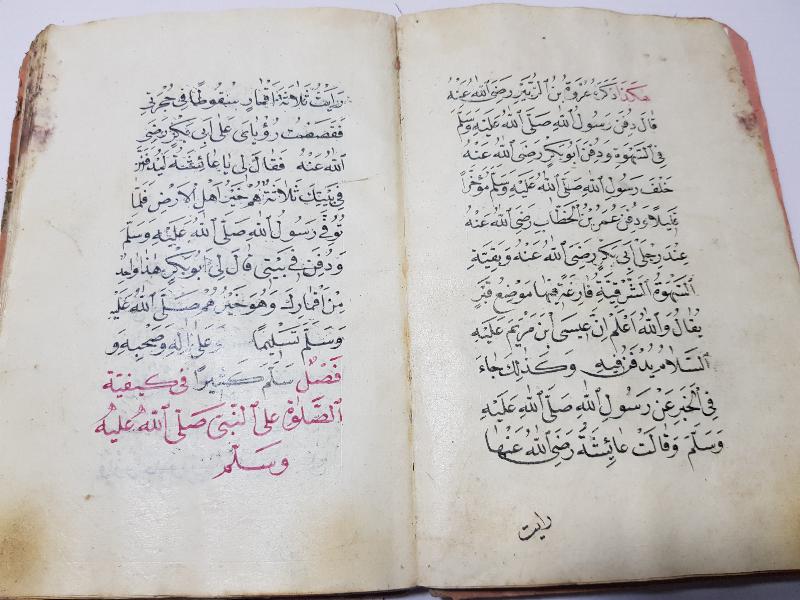 هكذا ذكره عروة بن الزبير رضي الله عنه
قال دفن رسول الله صلى الله عليه وسلم
في السهوة ودفن ابوبكر رضي الله عنه
خلف رسول الله صلى الله عليه وسلم مؤخرا
قليلا ودفن عمر بن الخطاب رضي الله عنه
عند رجلي ابي بكر رضي الله عنه وبقيت
السهوة الشرقية فارغة فيها موضع قبر
يقال والله اعلم ان عيسى ابن مريم عليه
السلام يدفن فيه وكذلك جاء
في الخبر عن رسول الله صلى الله عليه
وسلم وقالت عائشة رضي الله عنها
رايت
رايت ثلاثة اقمار سقوطا في حجرتي
فقصصت رؤياي على ابي بكر رضي
الله عنه فقال لي يا عائشة ليدفنن
في بيتك ثلاثة هم خير اهل الارض فلما
توفي رسول الله صلى الله عليه وسلم
ودفن في بيتي قال لي ابوبكر هذا واحد
من اقمارك وهو خيرهم صلى الله عليه
وسلم تسليما وعلى اله وصحبه و
فصل سلم كثيرا في كيفية
الصلوة على النبي صلى الله عليه
وسلم